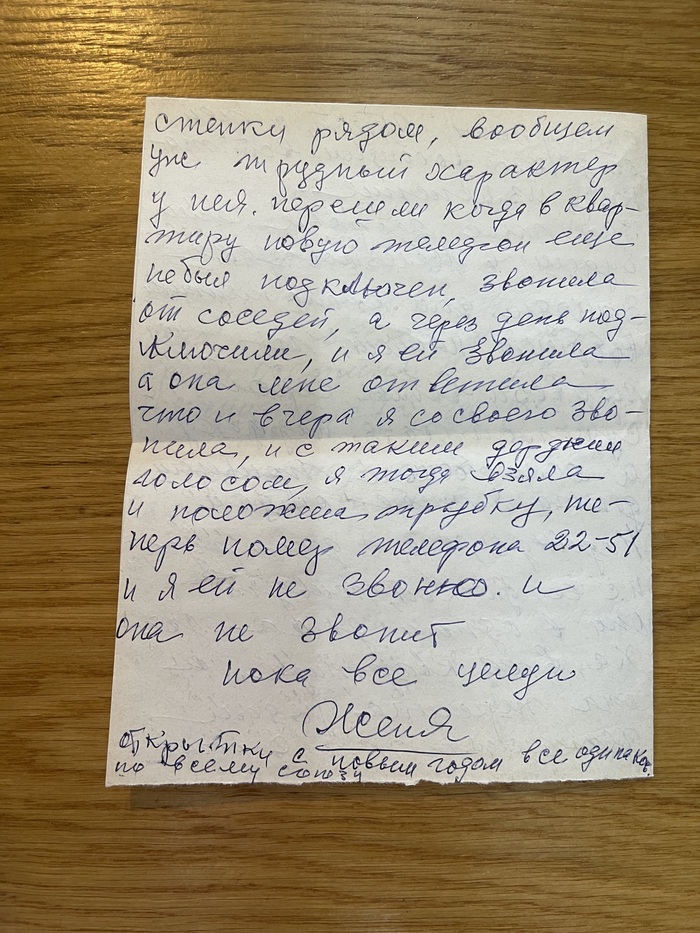 стенки рядом, вообщем
уж трудный характер
у нея. перешли когда в квар-
тиру новую телефон еще
не был подключен, звонила
от соседей, а через день под-
ключили, и я ей звонила
а она мне ответила
что и вчера я со своего зво-
нила, и с таким
голосом, я тогда взяла
и положила трубку, те-
перь номер телефона 22-51
и я ей не звоню. и
она не звонит
пока все целую
Женя
открытки с новым годом все одинаков.
по всему союзу